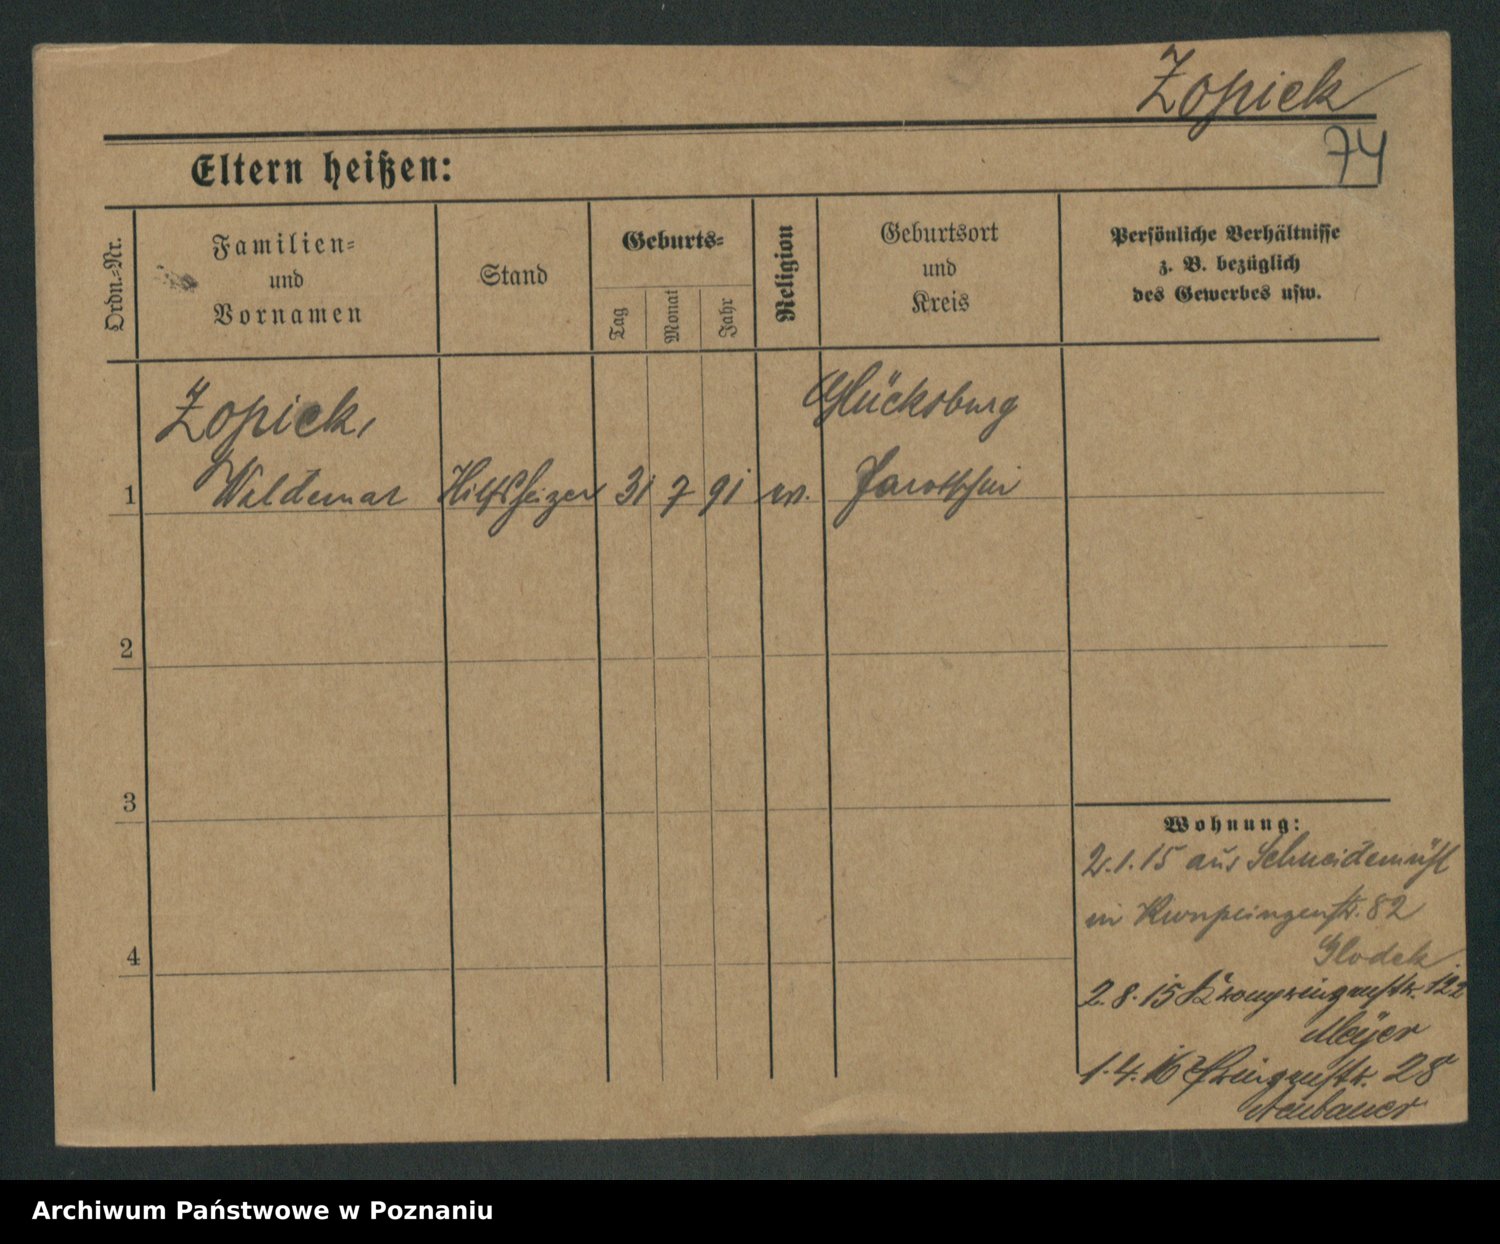 Zopick
74
Eltern heißen:
Ordn.-Nr.
Familien-
und
Vornamen
Stand
Geburts-
Tag
Monat
Jahr
Religion
Geburtsort
und
Kreis
Persönliche Verhältnisse
z. B. bezüglich
des Gewerbes usw.
Zopick,
Glücksburg
1 Waldemar Hilfsheizer 31 7 91 ev. Jarotschin
2
3
4
Wohnung:
2.1.15 aus Schneidemühl
in Kronprinzenstr. 82
Glodek
2.8.15 Kronprinzenstr. 122
Meyer
1.4.16 Prinzenstr. 28
Neubauer
Archiwum Państwowe w Poznaniu